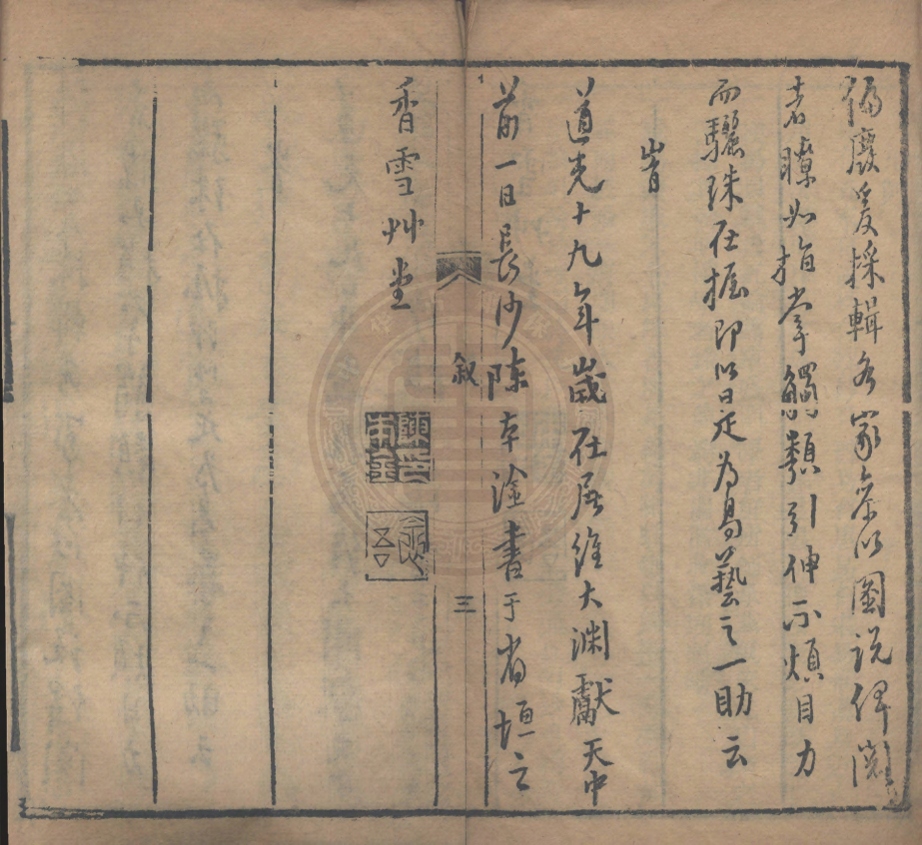 偏廢爰採輯各家参以圖説俾閱
者瞭如指掌觸類引伸不煩目力
而驪珠在握即以是為藝之一助云
旹
道光十九年歲在屠維大淵獻天中
前一日長沙陳本淦書于省垣之
叙
三
香雪艸堂
陳印本淦